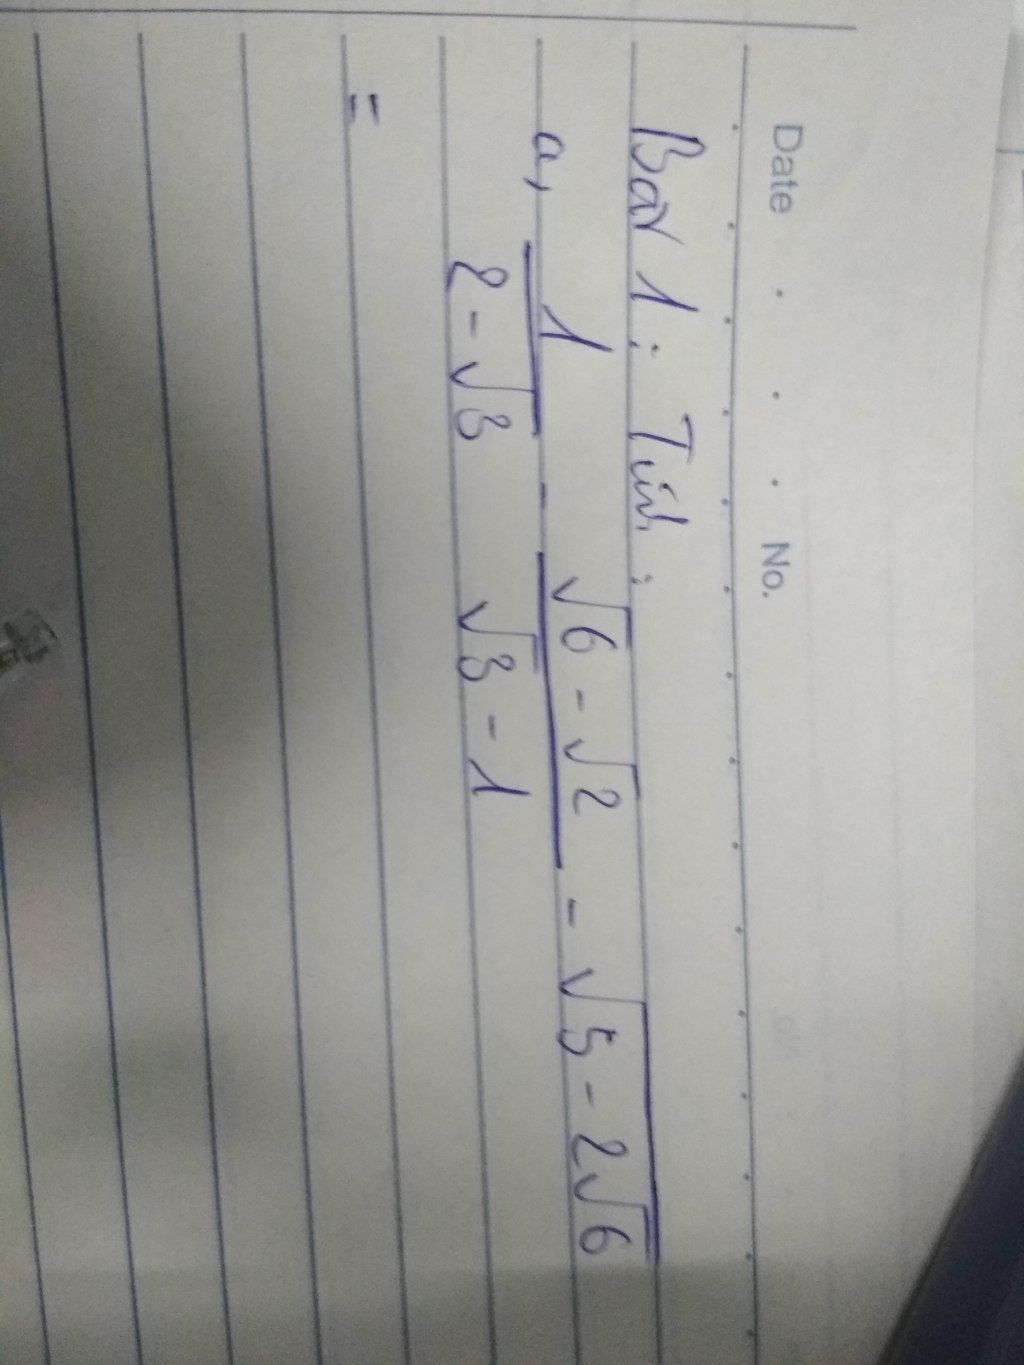 Date No.
Bài 1: Tính:
a, \frac{1}{2-\sqrt{3}} - \frac{\sqrt{6}-\sqrt{2}}{\sqrt{3}-1} - \sqrt{5-2\sqrt{6}}
=